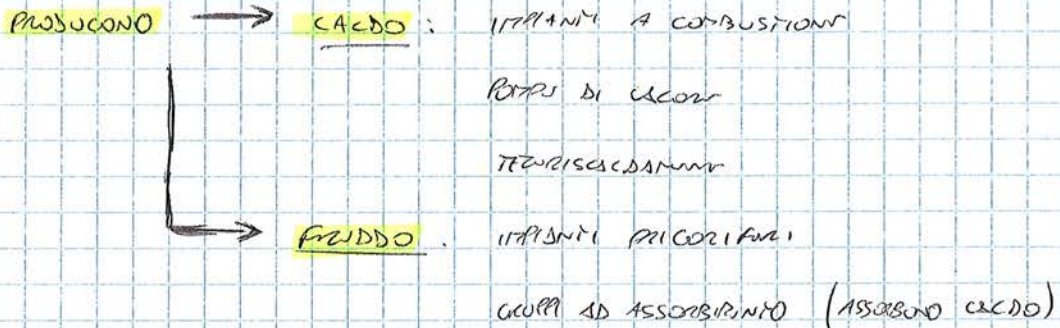 PRODUCONO → CALDO : IMPIANTI A COMBUSTIONE
POMPE DI CALORE
TELERISCALDAMENTO
→ FREDDO : IMPIANTI FRIGORIFERI
GRUPPI AD ASSORBIMENTO (ASSORBONO CALDO)